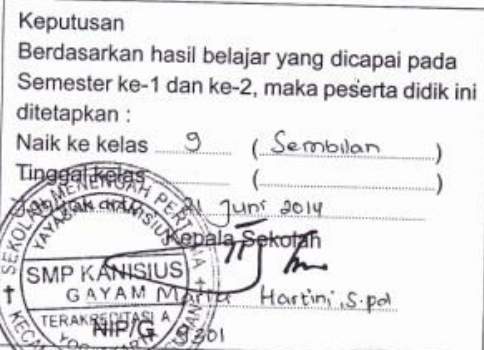 Keputusan
Berdasarkan hasil belajar yang dicapai pada
Semester ke-1 dan ke-2, maka peserta didik ini
ditetapkan :
Naik ke kelas 9 ( Sembilan )
Tinggal kelas ( )
21 Juni 2014
Kepala Sekolah
SEKOLAH MENENGAH PERTAMA
YAYASAN KANISIUS
SMP KANISIUS
GAYAM
TERAKREDITASI A
Hartini, S.pd
NIP/G